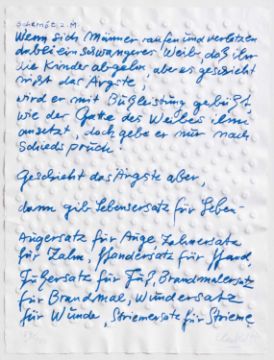 Wenn sich Männer raufen und verletzen
dabei ein schwangeres Weib, daß ihr
die Kinder abgehn, aber es geschieht
nicht das Ärgste,
wird er mit Bußleistung gebüßt
wie der Gatte des Weibes ihm
ansetzt, doch gebe er nur nach
Schiedspruch!
Geschieht das Ärgste aber,
dann gib Lebensersatz für Leben-
Augersatz für Auge, Zahnersatz
für Zahn, Handersatz für Hand,
Fußersatz für Fuß, Brandmalersatz
für Brandmal, Wundersatz
für Wunde, Striemersatz für Strieme